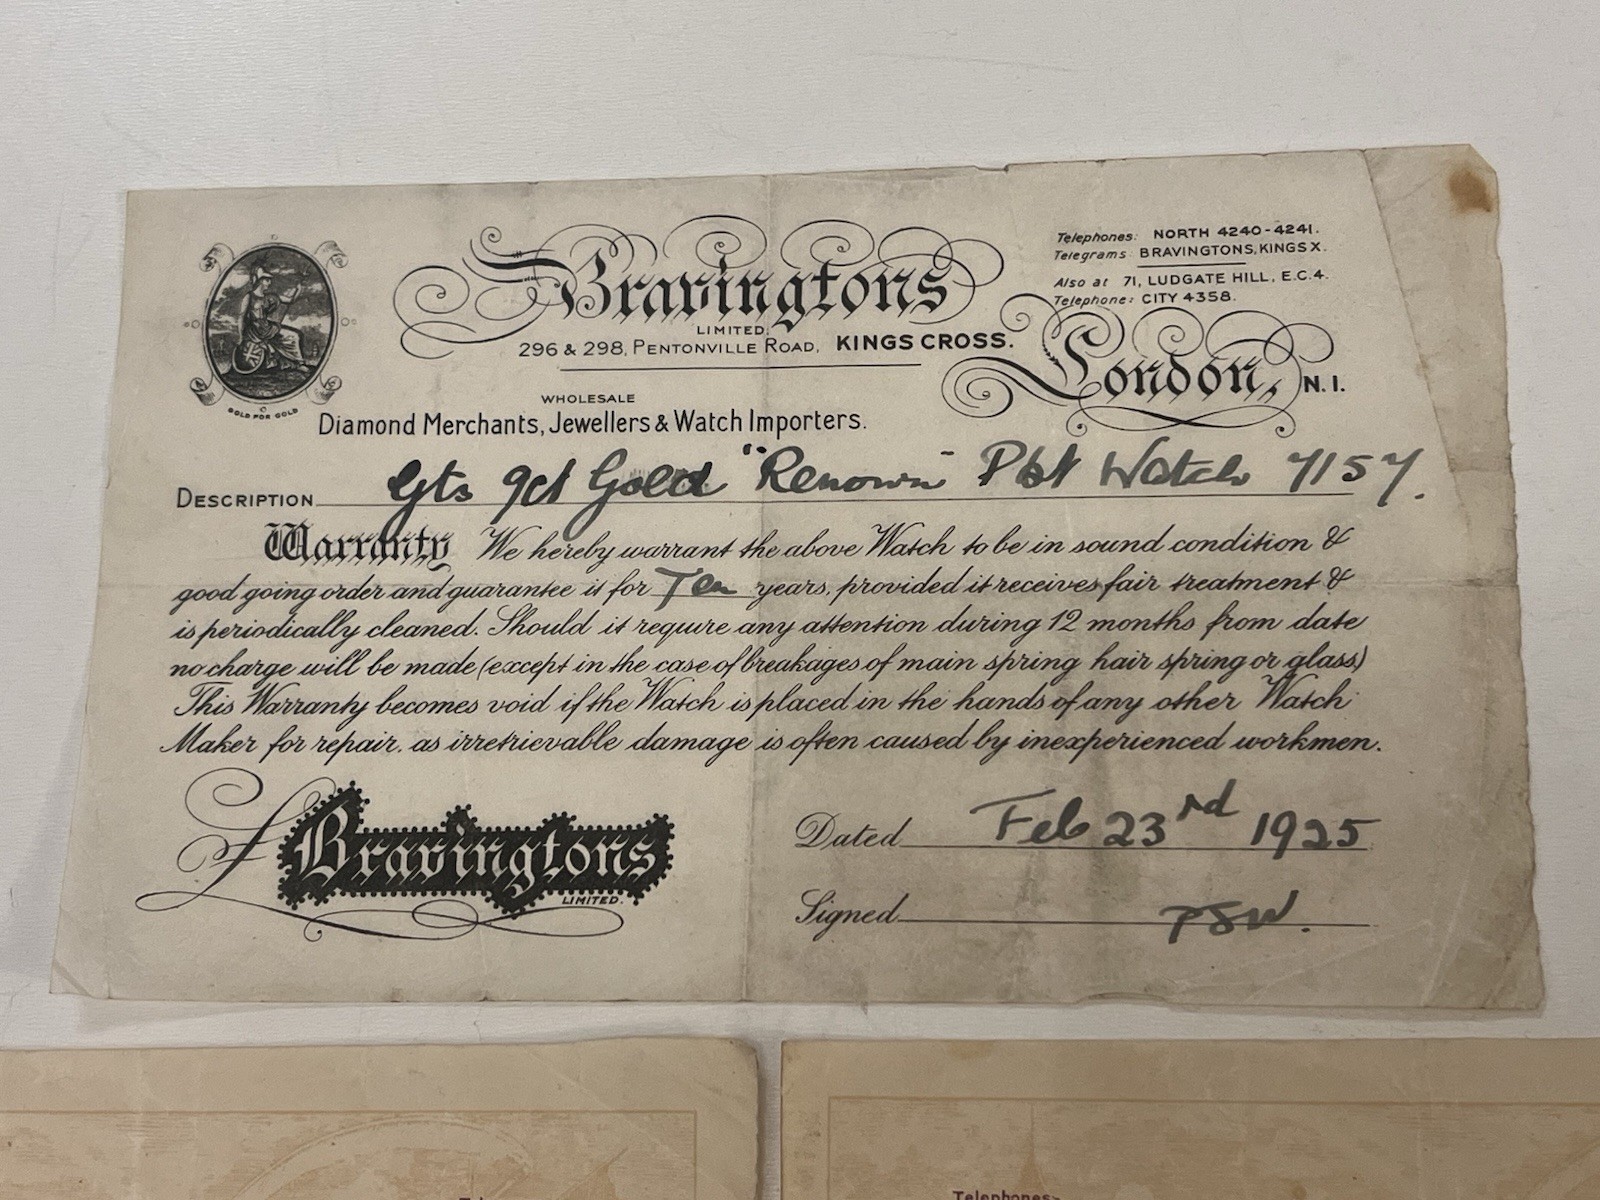 GOLD FOR GOLD
Bravingtons
LIMITED.
296 & 298, PENTONVILLE ROAD, KINGS CROSS.
Telephones: NORTH 4240-4241.
Telegrams: BRAVINGTONS, KINGS X.
Also at 71, LUDGATE HILL, E.C.4.
Telephone: CITY 4358.
London, N.1.
WHOLESALE
Diamond Merchants, Jewellers & Watch Importers.
DESCRIPTION Gts 9ct Gold "Renown" Pkt Watch 7157.
Warranty We hereby warrant the above Watch to be in sound condition &
good going order and guarantee it for Ten years, provided it receives fair treatment &
is periodically cleaned. Should it require any attention during 12 months from date
no charge will be made (except in the case of breakages of main spring hair spring or glass)
This Warranty becomes void if the Watch is placed in the hands of any other Watch
Maker for repair. as irretrievable damage is often caused by inexperienced workmen.
f Bravingtons
LIMITED.
Dated Feb 23rd 1925
Signed
Telephones-